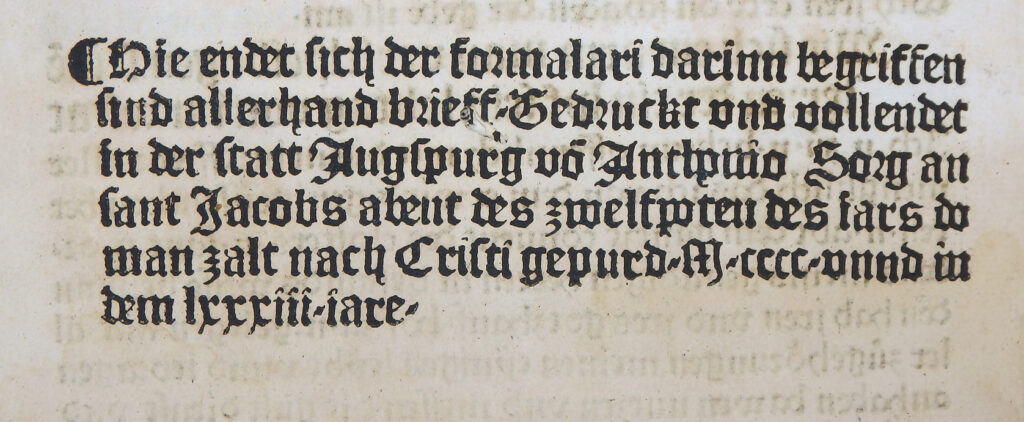 Hie endet sich der formalari darinn begriffen
sind allerhand brieff. Gedruckt vnd vollendet
in der statt Augspurg vō Anthonio Sorg an
sant Jacobs abent des zwelfpoten des iars do
man zalt nach Cristi gepurd. M. cccc. vnnd in
dem lxxxiii. iare.